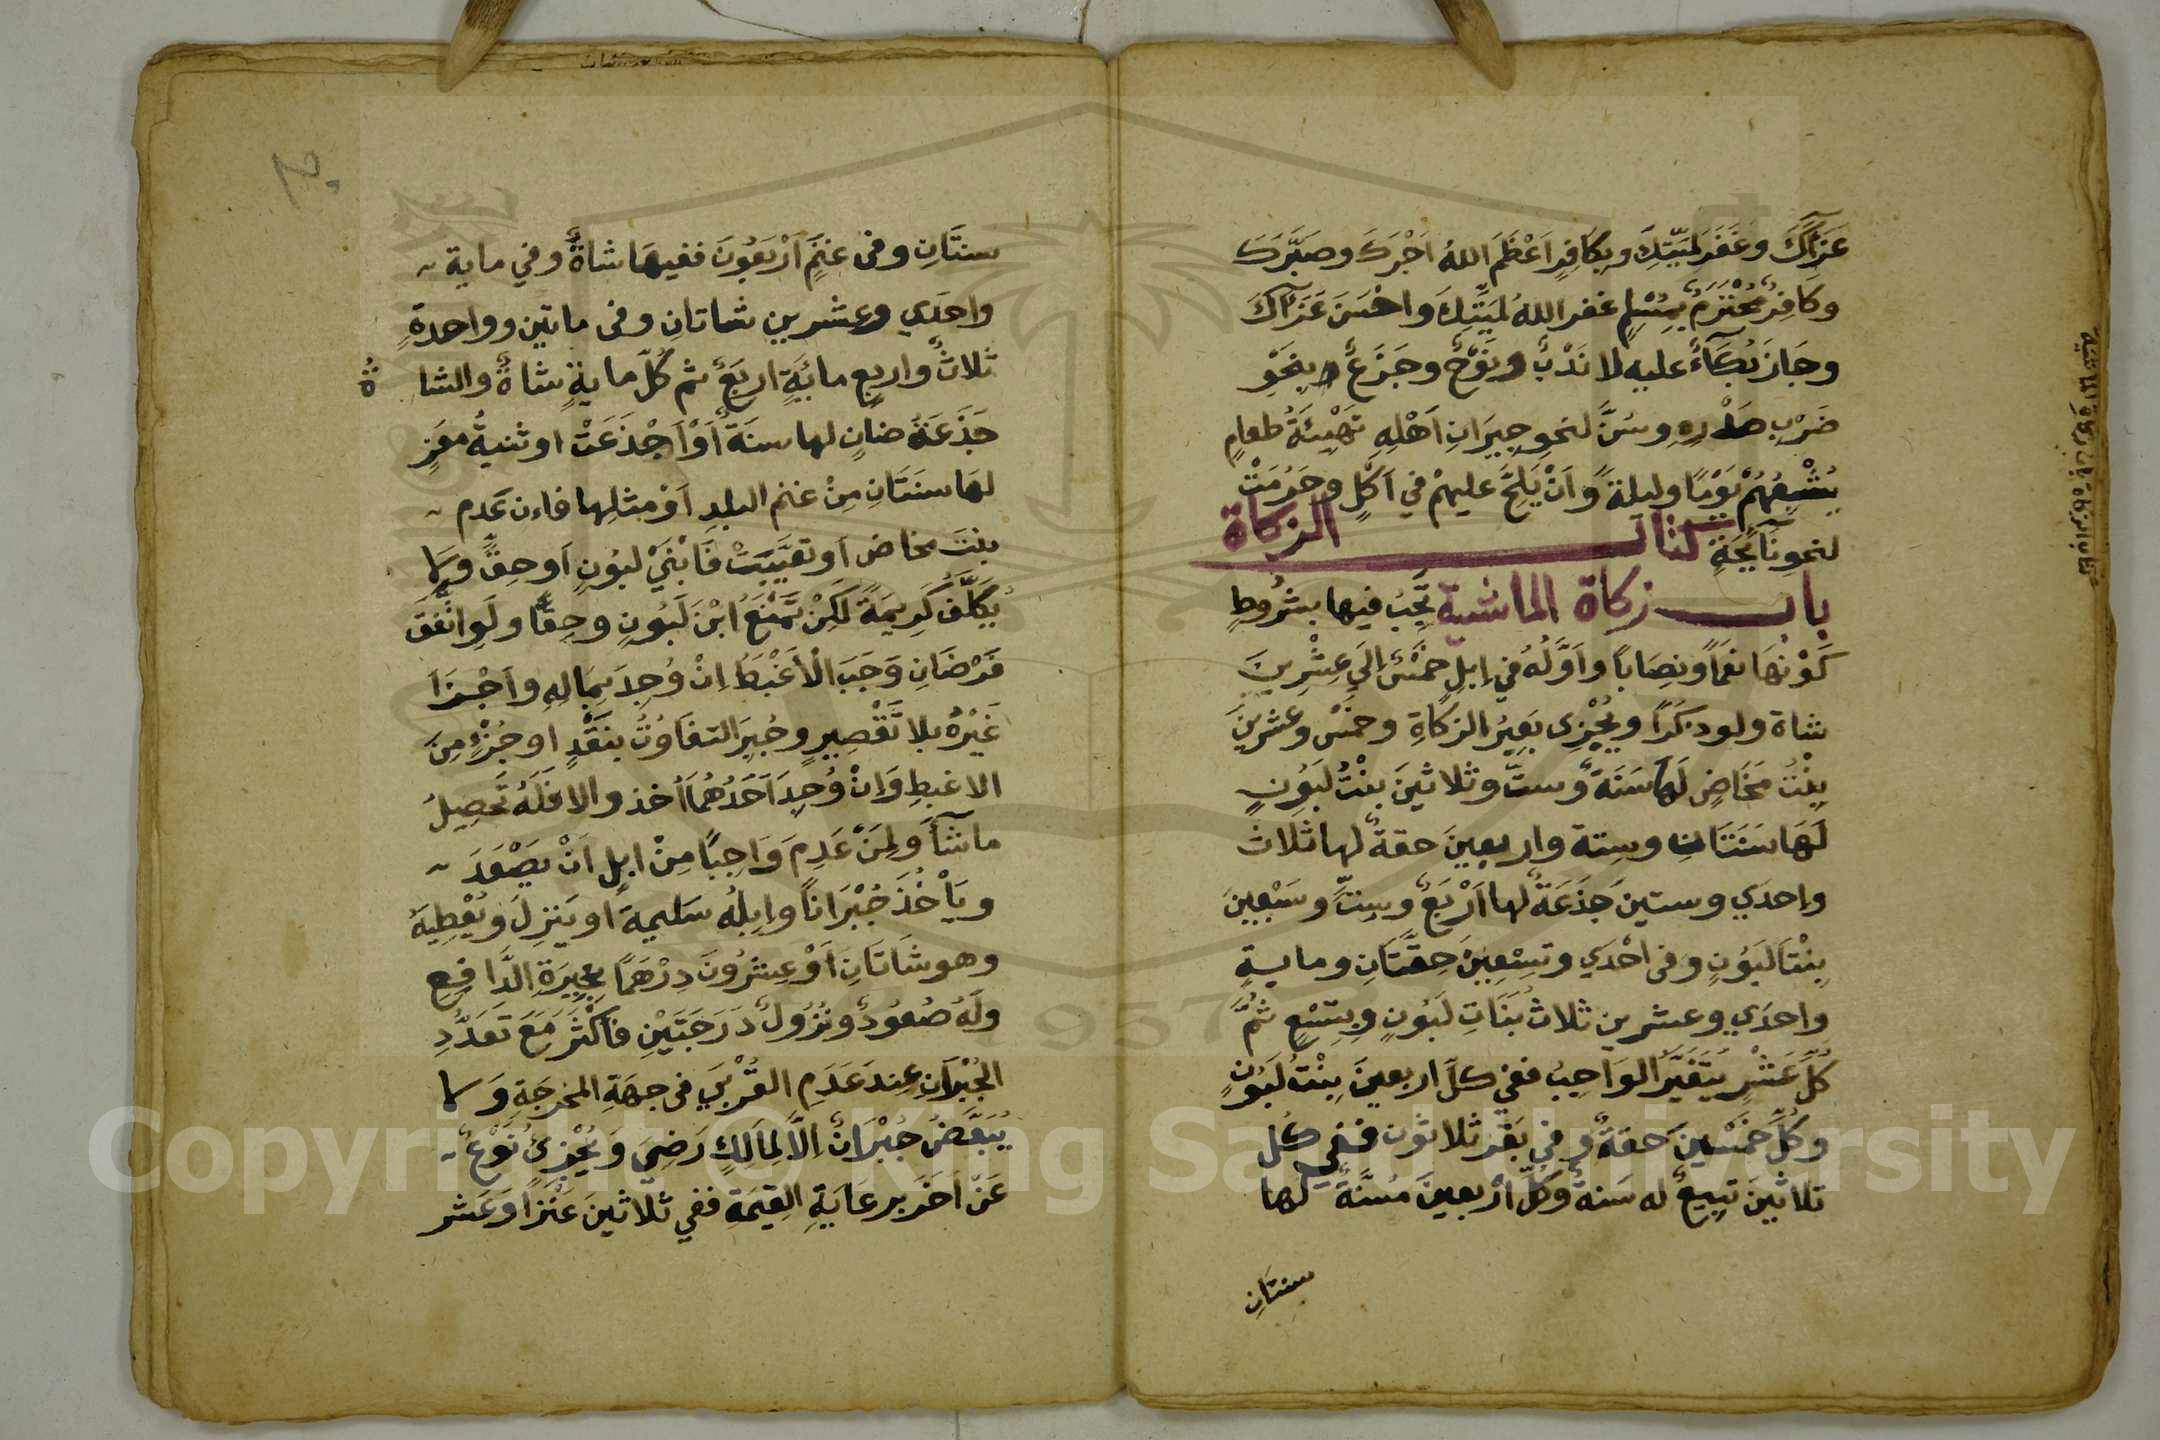 عَزَآكَ وغَفَرَ لمَيِّتِكَ وبِكَافِرٍ اَعْظَمَ اللهُ اَجْرَكَ وصَبَّرَكَ
وكافِرٌ مُحْتَرَمٌ بِمُسْلِمٍ غفر اللهُ لمَيِّتِكَ واحْسَنَ عَزَآكَ
وجَازَ بُكَآءٌ عليه لا نَدْبٌ ونَوْحٌ وجَزَعٌ بِنَحْوِ
ضَرْبِ صَدْرِهِ وسُنَّ لنحوِ جِيرَانِ اَهْلِهِ تَهْيِئَةُ طعامٍ
يُشْبِعُهُمْ يَوْمًا وليلةً وَاَنْ يُلِحَّ عليهمْ في اَكْلٍ وحَرُمَتْ
لنحو نَآئِحَةٍ كتاب الزكاة
باب زكاة الماشية تَجِبُ فيها بشُرُوطٍ
كَوْنُهَا نعَمًا ونِصَابًا واَوَّلُهُ في اِبلٍ خمْسٌ اِلي عِشْرِينَ
شاة ولو ذكَرًا ويُجْزِى بَعِيرُ الزكَاةِ وخمْسٌ وعشرينَ
بِنْتُ مَخَاضٍ لَهَا سَنَةٌ وستّ وثلاثينَ بنْتُ لَبُونٍ
لَهَا سَنَتَانِ وستة واربعينَ حقةٌ لها ثلاث
واحدَي وستينَ جَذَعَةٌ لها اَرْبَعٌ وسِتّ وسَبْعِينَ
بِنْتَا لَبُونٍ وفى اَحْدَي وتِسْعِينَ حِقَّتَانِ وماية
واحدَي وعشرين ثلاثُ بَنَاتِ لَبُونٍ وبِتِسْعٍ ثُمَّ
كُلَّ عَشْرٍ يَتَغَيَّرُ الوَاجِبُ ففي كلّ اربعينَ بِنْتُ لَبُونٍ
وكُلّ خمْسينَ حقةٌ وفى بَقَرٍ ثلاثون ففي كل
ثلاثينَ تبِيعٌ له سَنةٌ وكُلّ اَرْبعينَ مُسنَّةٌ لها
سنتَانِ
سنتَانِ وفى غنَمٍ اَرْبَعُونَ ففيهَا شاةٌ وفي ماية
واحدَي وعشرين شاتانِ وفى ماتين وواحدةٍ
ثلاثٌ واربعِ مائيَةٍ اربَعٌ ثم كُلّ مايةٍ شاةٌ والشاةُ
جَذَعَةُ ضانٍ لها سنَةٌ اَوْ اَجْذَعَتْ او ثنيةُ معَزٍ
لهَا سَنَتَانِ مِنْ غنم البلدِ اَوْ مثلِها فاءن عَدم
بنت مخاض اَو تعَيَّبَتْ فَابْنَيْ لبُونٍ اَوحِقّ ولا
يكَلَّفُ كَرِيمَةً لَكِنْ تمْنَعُ ابْنَ لَبُونٍ وحِقًّا ولَوِ اتَّفَقَ
فَرْضَانِ وَجَبَ الْاَغْبَطُ اِنْ وُجِدَ بِمَالِهِ واَجْزَا
غَيْرُهُ بلا تَقْصِيرٍ وجُبِرَ التفَاوُتُ بنَقْدٍ او جُزْءٍ مِنَ
الاغبطِ وَاِنْ وُجِدَ اَحَدُهُمَا اُخذ والا فلَهُ تَحصِيلُ
ما شَآءَ ولِمَنْ عَدِمَ وَاجِبًا مِنْ ابلٍ اَنْ يصْعَدَ
ويَاْخُذَ جُبْرَانًا وابِلُهُ سَليمةٌ او يَنزِلَ ويُعْطِيهُ
وهو شَاتَانِ اَوْ عِشرُونَ دِرْهَمًا بِخِيرَةِ الدَّافِعِ
ولَهُ صُعُودٌ ونُزُولٌ دَرَجَتَيْنِ فاَكْثَرَ مَعَ تعَدُّدِ
الجُبْرَانِ عِنْدَ عَدَمِ القُرْبَي فى جهَةِ المخرجَةِ وَلا
يُبَعَّضُ جُبْرَانٌ اِلَّا لِمَالِكٍ رَضِيَ وَيُجْزِئُ نَوْعٌ
عَنْ اَخَرَ برعَايَةِ القِيمَةِ ففي ثلاثينَ عَنْزًا وَعَشر
Copyright © King Saud University
1957